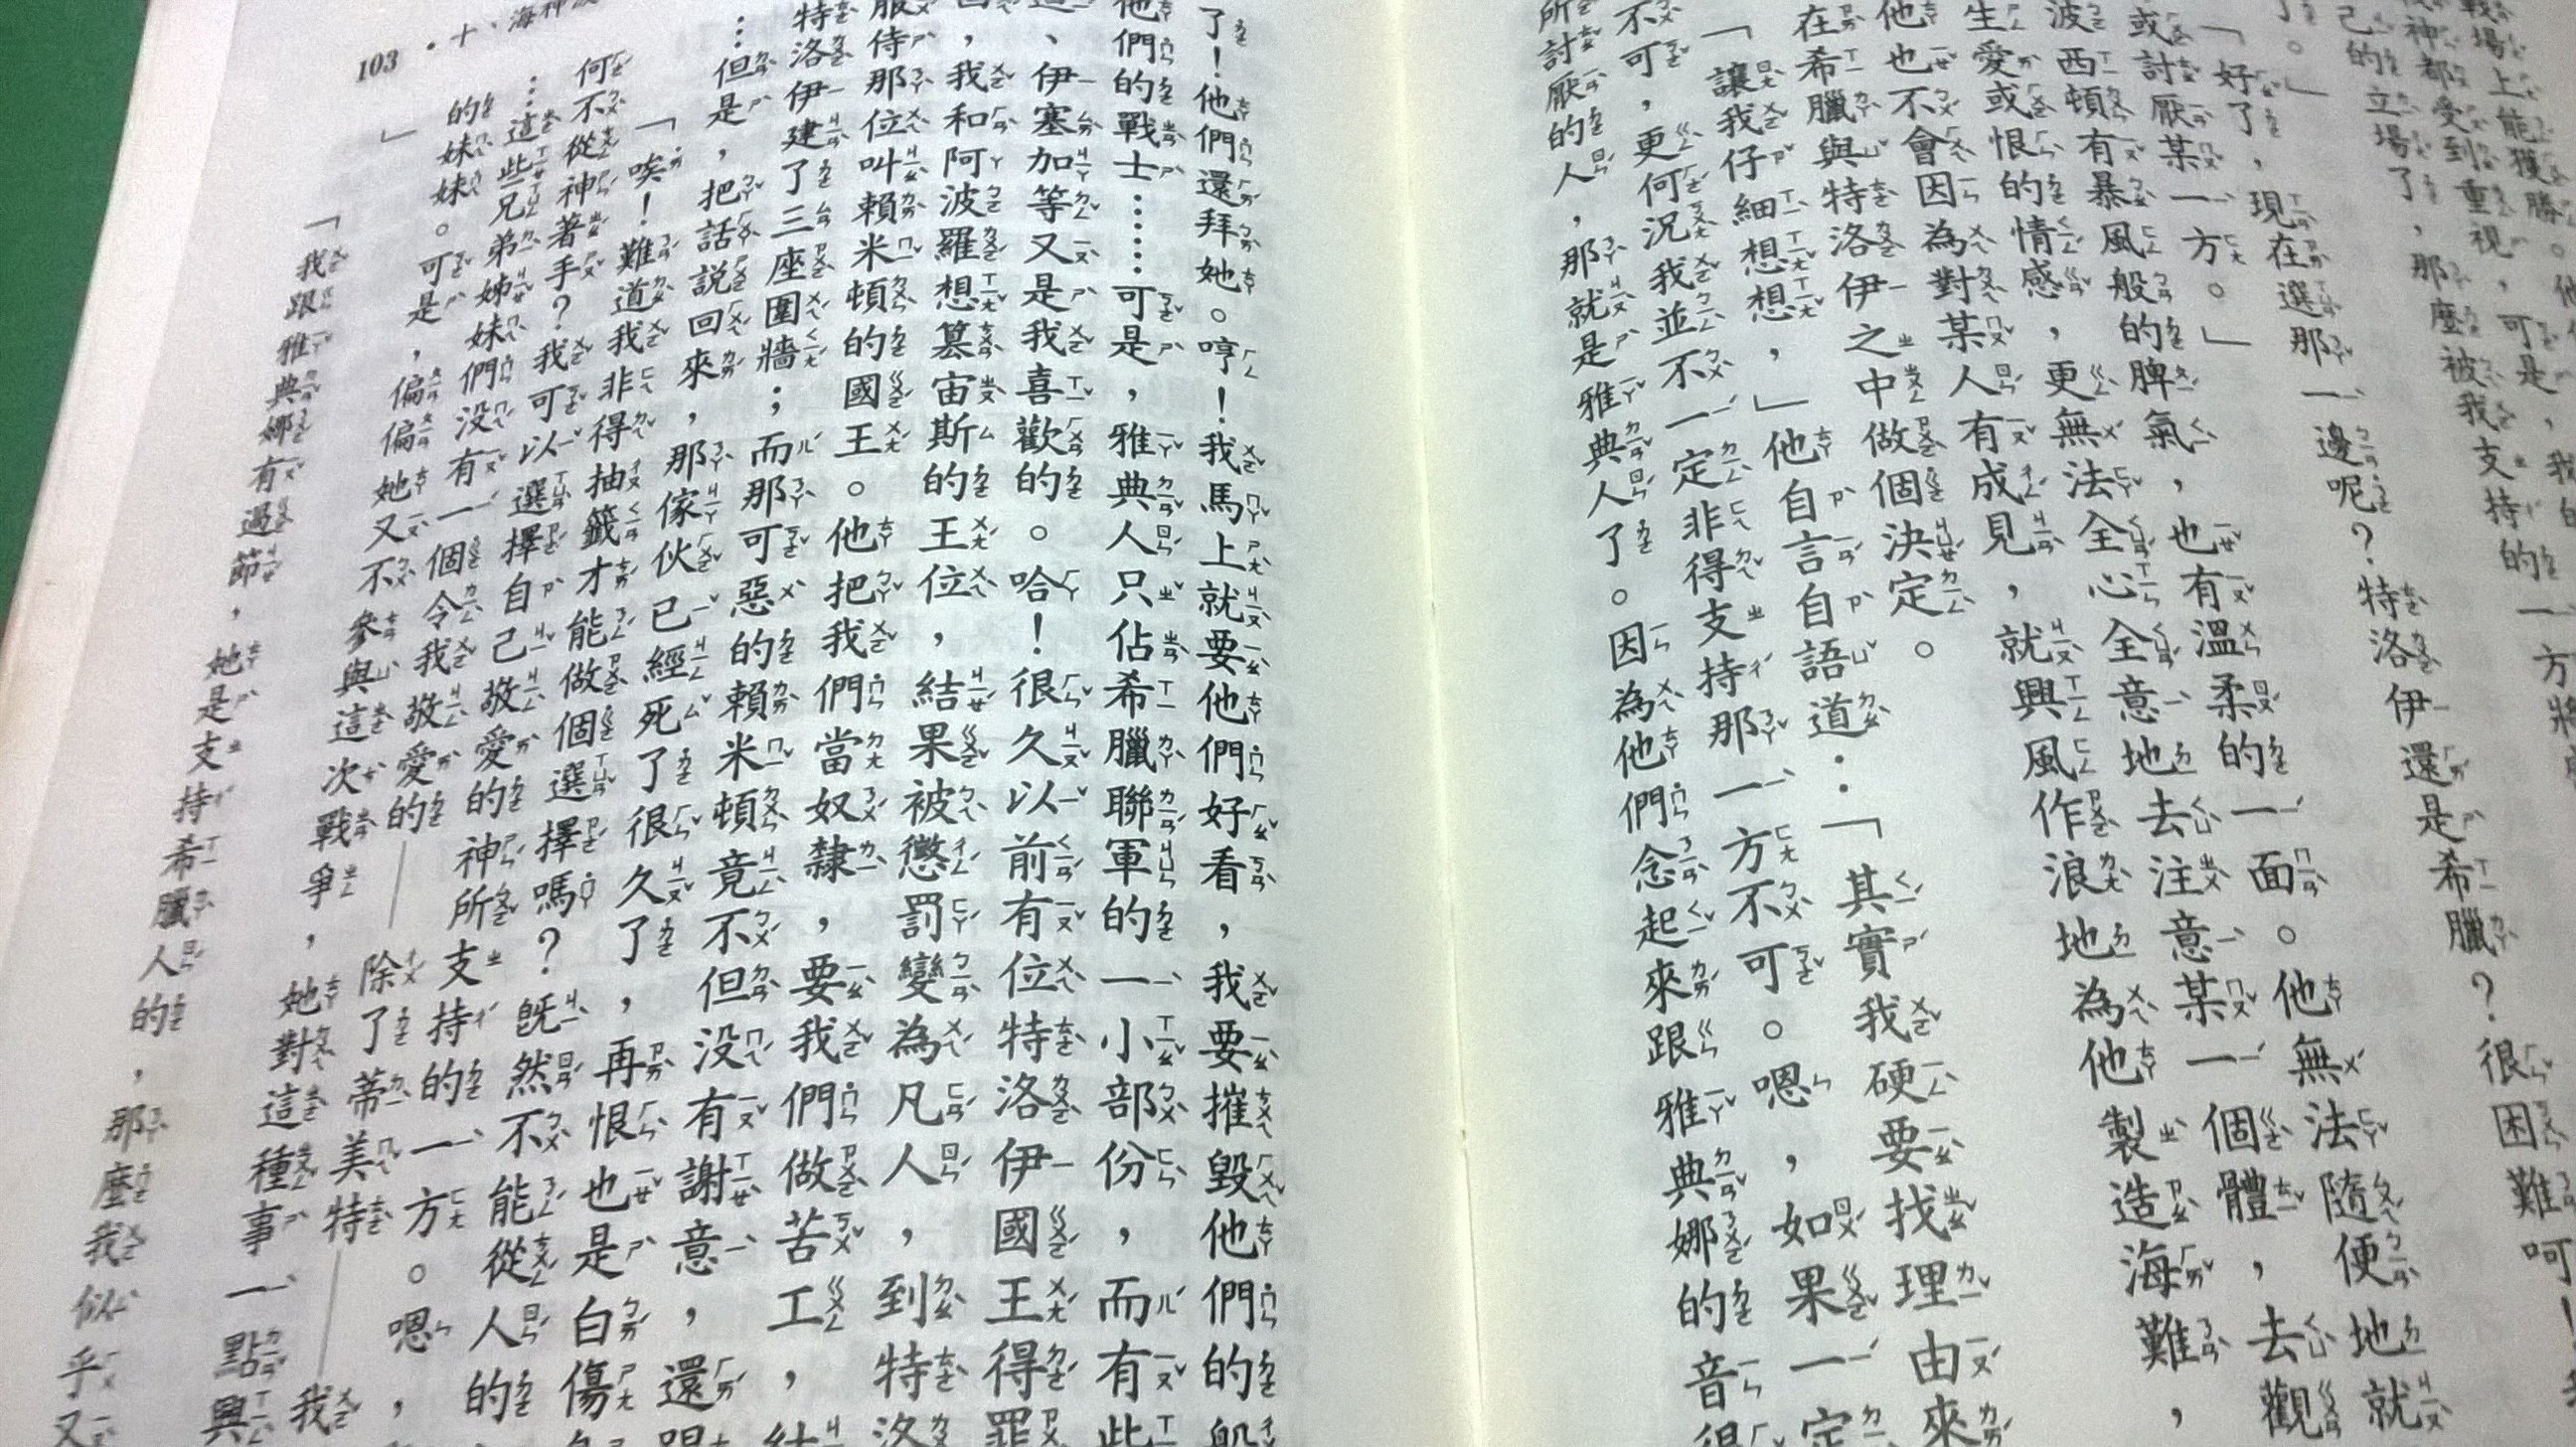 戰場上能獲勝。他
神都受到重視，可是，我
己的立場了，那麼被我支持的一方將
了。」
「好了，現在選那一邊呢？特洛伊還是希臘？很困難呵！
或討厭某一方。」
波西頓有暴風般的脾氣，也有溫柔的一面。他無法隨便地就
生愛或恨的情感，更無法全心全意地去注意某一個體，去觀
他也不會因為對某人有成見，就興風作浪地為他製造海難，
在希臘與特洛伊之中做個決定。
「讓我仔細想想，」他自言自語道：「其實我硬要找理由來
不可，更何況我並不一定非得支持那一方不可。嗯，如果一定
所討厭的人，那就是雅典人了。因為他們念起來跟雅典娜的音很
103 •十、海神波
了！他們還拜她。哼！我馬上就要他們好看，我要摧毀他們的船
他們的戰士……可是，雅典人只佔希臘聯軍的一小部份，而有些
、伊塞加等又是我喜歡的。哈！很久以前有位特洛伊國王得罪
，我和阿波羅想篡宙斯的王位，結果被懲罰變為凡人，到特洛
服侍那位叫賴米頓的國王。他把我們當奴隸，要我們做苦工，結
特洛伊建了三座圍牆；而那可惡的賴米頓竟不但沒有謝意，還
…但是，把話說回來，那傢伙已經死了很久了，再恨也是白傷
「唉！難道我非得抽籤才能做個選擇嗎？既然不能從人的
何不從神著手？我可以選擇自己敬愛的神所支持的一方。嗯，
…這些兄弟姊妹們沒有一個令我敬愛的——除了蒂美特——我
的妹妹。可是，偏偏她又不參與這次戰爭，她對這種事一點興
」
「我跟雅典娜有過節，她是支持希臘人的，那麼我似乎又